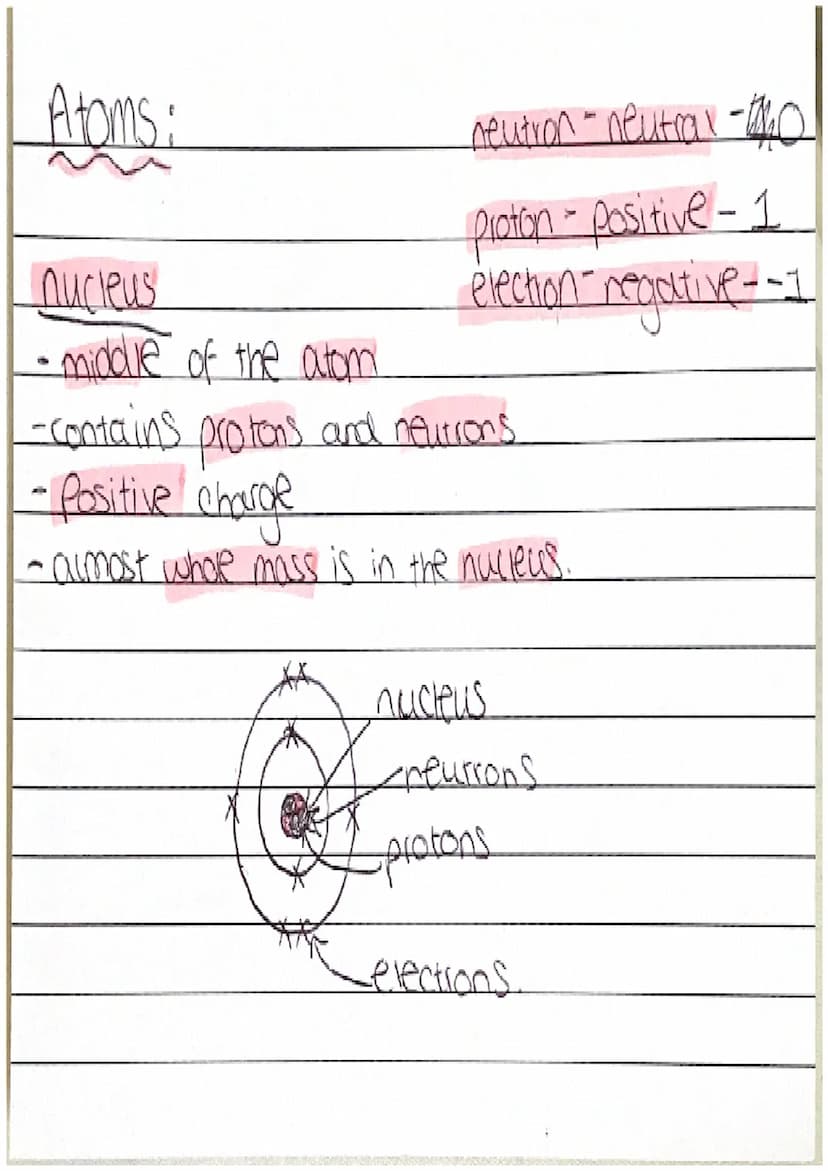 Atoms:
neutron - neutral - 0
proton - positive - 1
electron - negative - -1
nucleus
- middle of the atom
- contains protons and neutrons
- Positive charge
- almost whole mass is in the nucleus.
nucleus
neutrons
protons
electrons.